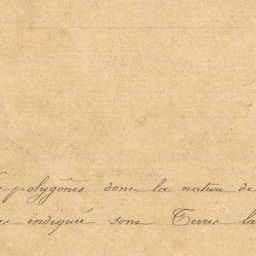 polygones dont la nature de
indiquée sont Terres la